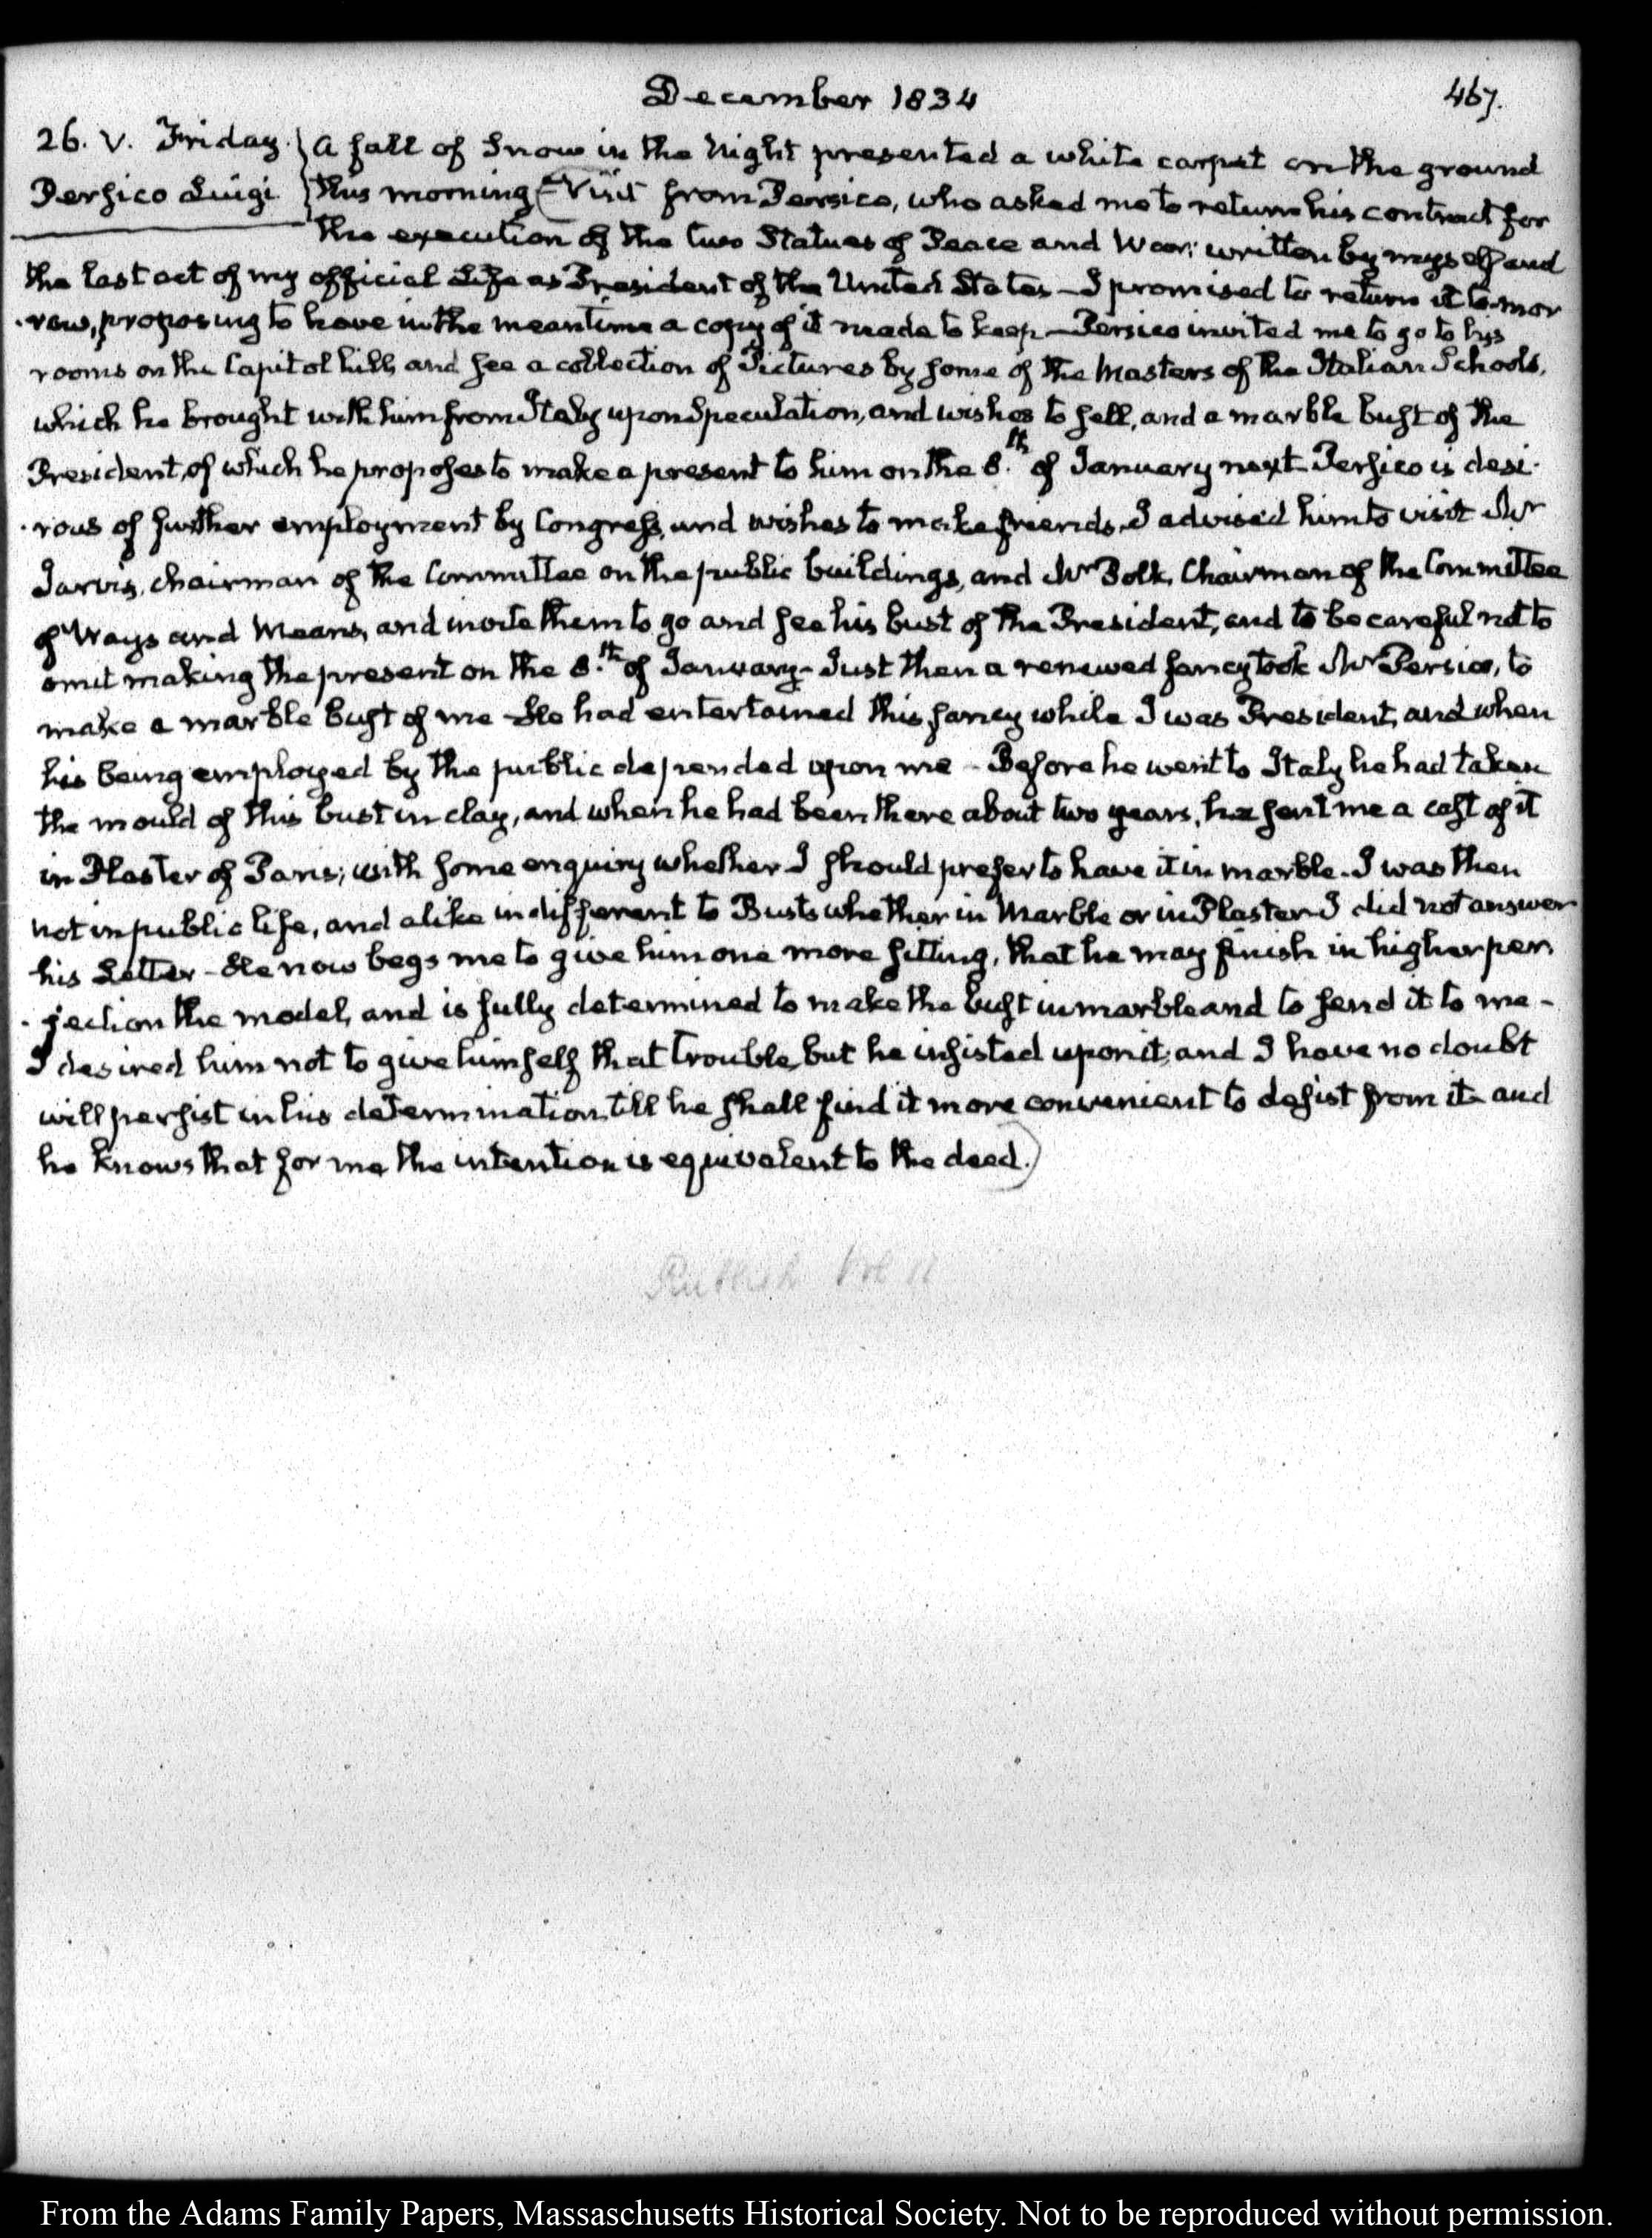 December 1834
467.
26. V. Friday. A fall of Snow in the Night presented a white carpet on the ground
Persico Luigi this morning (Visit from Persico, who asked me to return his contract for
the execution of the two Statues of Peace and War; written by myself and
the last act of my official Life as President of the United States — I promised to return it to-mor
-row, proposing to have in the meantime a copy of it made to keep — Persico invited me to go to his
rooms on the Capitol hill, and see a collection of Pictures by some of the Masters of the Italian Schools,
which he brought with him from Italy upon Speculation, and wishes to sell, and a marble bust of the
President, of which he proposes to make a present to him on the 8.th of January next Persico is desi-
-rous of further employment by Congress, and wishes to make friends. I advised him to visit Mr
Jarvis, chairman of the Committee on the public buildings, and Mr Polk, Chairman of the Committee
of Ways and Means, and invite them to go and see his bust of the President, and to be careful not to
omit making the present on the 8.th of January - Just then a renewed fancy took Mr Persico, to
make a marble bust of me - He had entertained this fancy while I was President, and when
his being employed by the public depended upon me - Before he went to Italy he had taken
the mould of this bust in clay, and when he had been there about two years, he sent me a cast of it
in Plaster of Paris; with some enquiry whether I should prefer to have it in marble. I was then
not in public life, and alike indifferent to Busts whether in Marble or in Plaster I did not answer
his Letter - He now begs me to give him one more sitting, that he may finish in higher per
-fection the model, and is fully determined to make the bust in marble and to send it to me -
I desired him not to give himself that trouble, but he insisted upon it; and I have no doubt
will persist in his determination till he shall find it more convenient to desist from it - and
he knows that for me the intention is equivalent to the deed.)
From the Adams Family Papers, Massachusetts Historical Society. Not to be reproduced without permission.